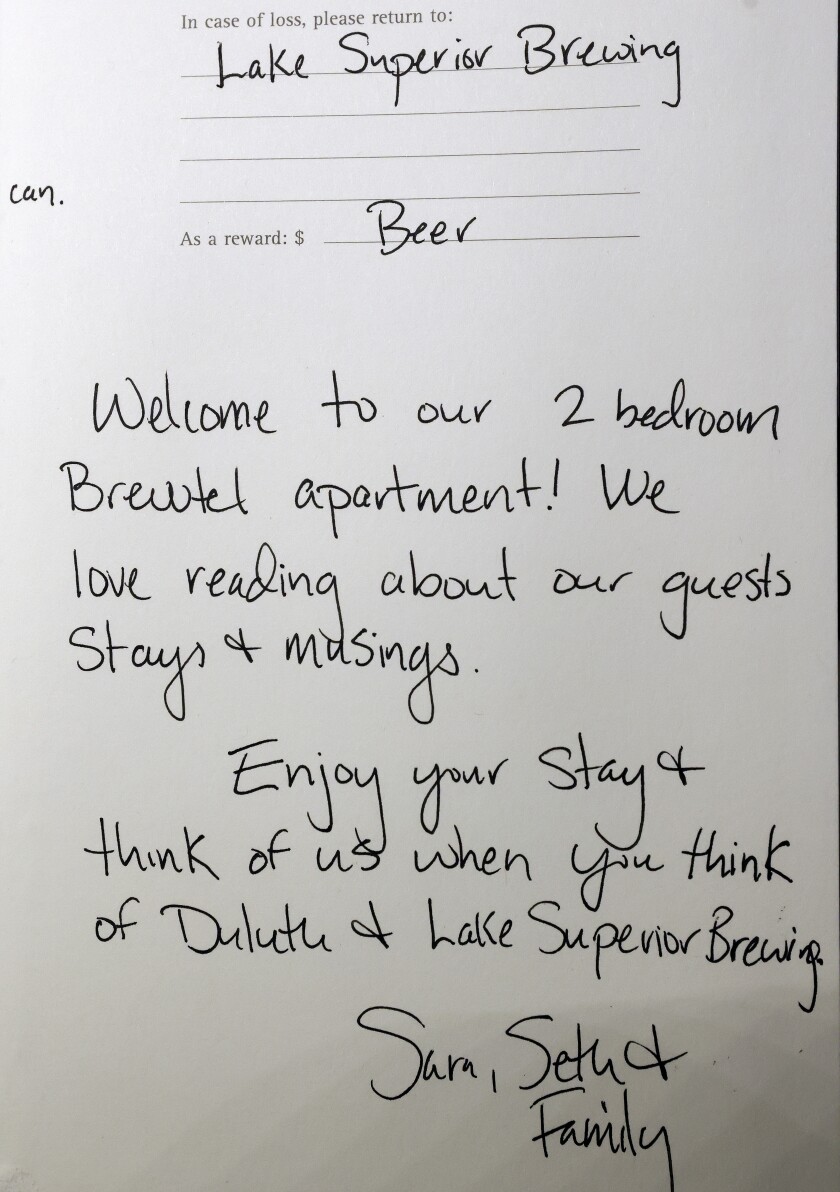 In case of loss, please return to:
Lake Superior Brewing
can.
As a reward: $ Beer
Welcome to our 2 bedroom
Brewtel apartment! We
love reading about our guests
Stays & musings.
Enjoy your stay &
think of us when you think
of Duluth & Lake Superior Brewing.
Sara, Seth &
Family